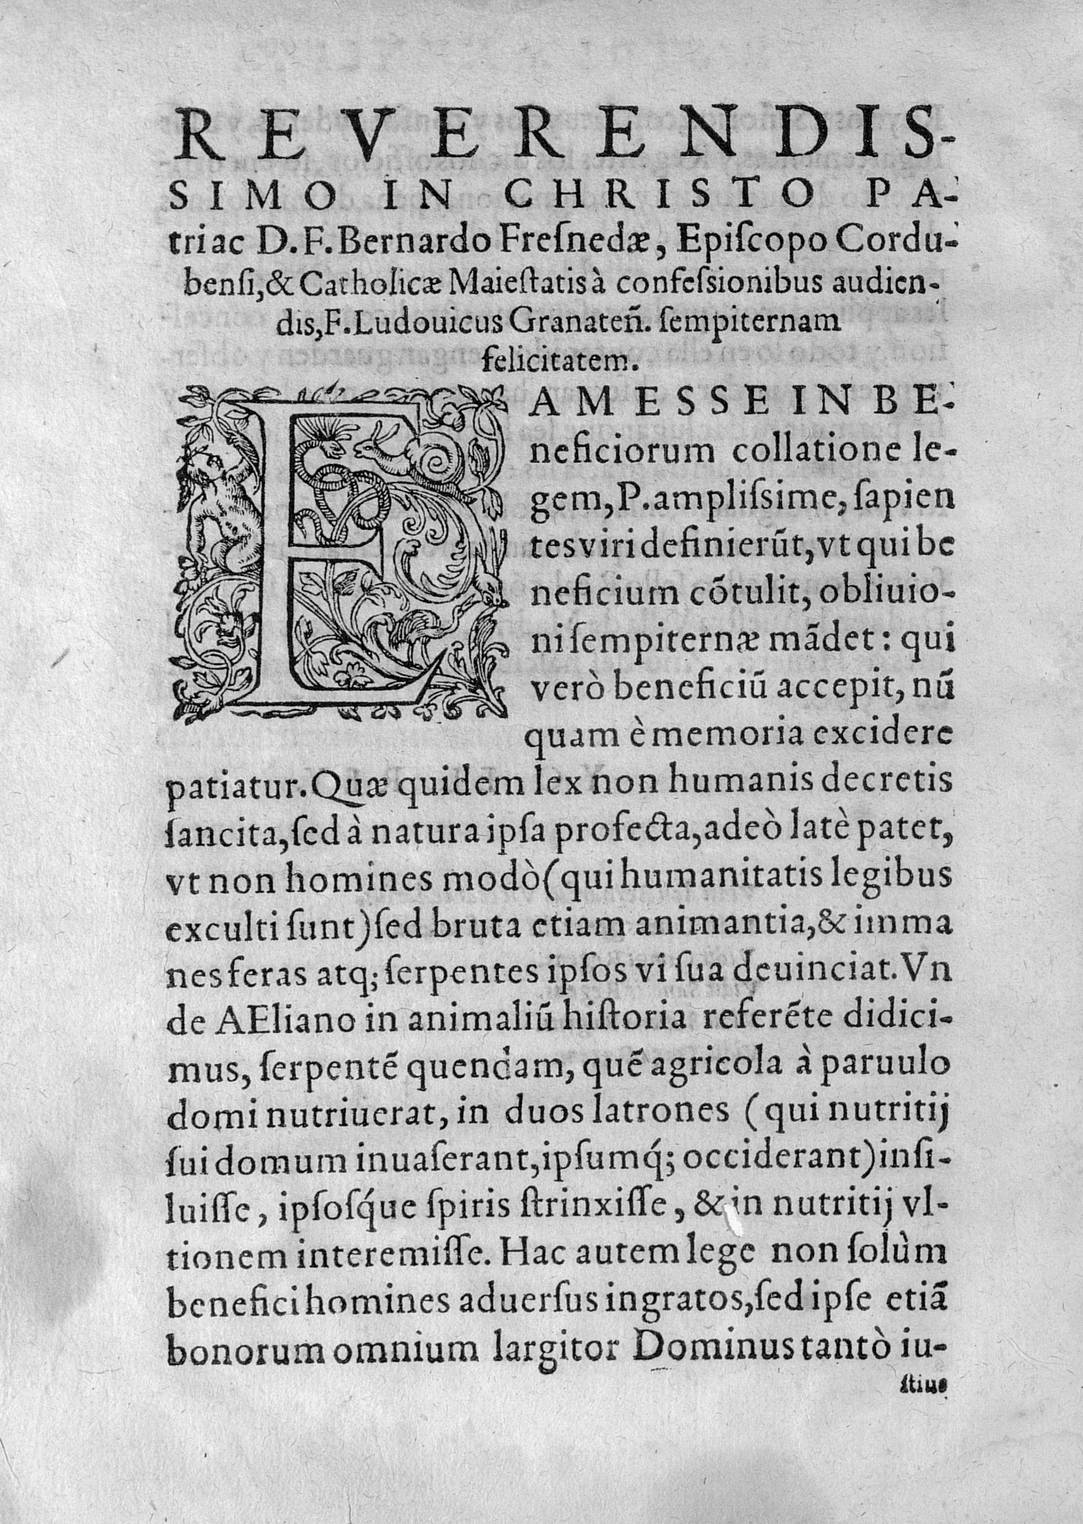 REVERENDIS-
SIMO IN CHRISTO PA-
tri ac D. F. Bernardo Freſnedæ, Epiſcopo Cordu-
benſi, & Catholicæ Maieſtatis à confeſsionibus audien-
dis, F. Ludouicus Granateñ. ſempiternam
felicitatem.
EAM ESSE IN BE-
neficiorum collatione le-
gem, P. ampliſsime, ſapien
tes viri definierūt, vt qui be
neficium cōtulit, obliuio-
ni ſempiternæ mādet: qui
verò beneficiū accepit, nū
quam è memoria excidere
patiatur. Quæ quidem lex non humanis decretis
ſancita, ſed à natura ipſa profecta, adeò latè patet,
vt non homines modò (qui humanitatis legibus
exculti ſunt) ſed bruta etiam animantia, & imma
nes feras atq; ſerpentes ipſos vi ſua deuinciat. Vn
de AEliano in animaliū hiſtoria referēte didici-
mus, ſerpentē quendam, quē agricola à paruulo
domi nutriuerat, in duos latrones (qui nutritij
ſui domum inuaſerant, ipſumq́; occiderant) inſi-
luiſſe, ipſoſq́ue ſpiris ſtrinxiſſe, & in nutritij vl-
tionem interemiſſe. Hac autem lege non ſolùm
benefici homines aduerſus ingratos, ſed ipſe etiā
bonorum omnium largitor Dominus tantò iu-
ſtius